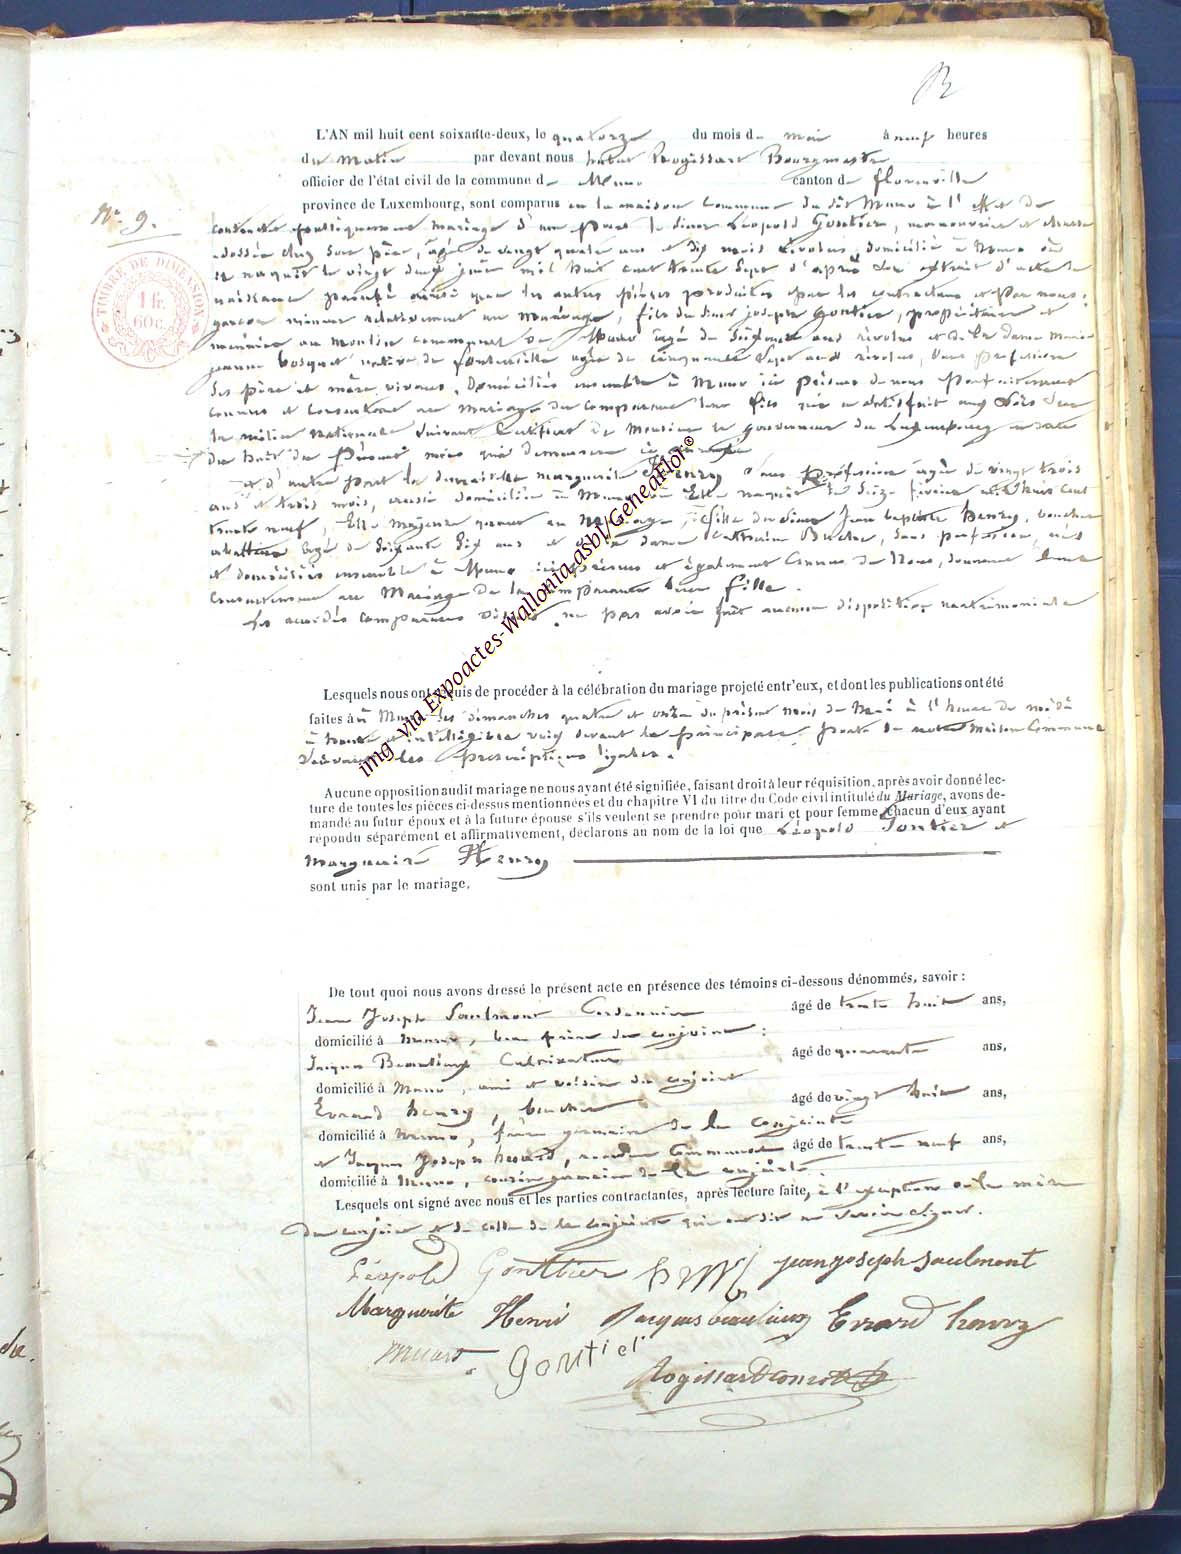 L'AN mil huit cent soixante-deux, le quatorze du mois de mai à neuf heures
du matin par devant nous hubert Rogissart Bourgmestre
officier de l'état civil de la commune de Muno canton de florenville
province de Luxembourg, sont comparus en la maison Commune du dit Muno à l'effet de
N° 9.
contracter publiquement mariage d'une Part le sieur Léopold Gontier, manouvrier et
chez Son père, âgé de vingt quatre ans et dix mois révolus, domicilié à Muno où
il naquit le vingt deux juin mil huit cent trente Sept d'après Son extrait d'acte de
TIMBRE DE DIMENSION
1 fr. 60 c.
naissance ainsi que les autres Pièces produites Par les contractans et Par nous,
garçon mineur relativement au Mariage, fils du sieur joseph Gontier, propriétaire et
meunier au moulin communal de Muno âgé de ans révolus et de la dame Marie
jeanne bosquet native de fontenoille agée de cinquante Sept ans révolus, Sans profession
Ses père et mère vivans, Domiciliés ensemble à Muno ici présens de nous Parfaitement
connus et consentans au mariage du comparant leur fils qui a satisfait aux Lois Sur
la milice nationale Suivant Certificat de Monsieur le gouverneur du Luxembourg en date
du huit du Présent mois qui demeure ici
et d'autre part la demoiselle marguerite Henry Sans Profession agée de vingt trois
ans et trois mois, aussi domiciliée à Muno où Elle naquit le Seize février mil huit cent
trente neuf, Elle Majeure quant au Mariage, fille du sieur Jean baptiste Henry, boucher
âgé de Soixante Six ans et de la dame Catherine Sans profession, nés
et domiciliés ensemble à Muno ici présens et également Connus de Nous, donnant leur
Consentement au Mariage de la comparante leur fille.
Les accordés comparants ne pas avoir fait aucune disposition matrimoniale
Lesquels nous ont requis de procéder à la célébration du mariage projeté entr'eux, et dont les publications ont été
faites à Muno les dimanches quatre et onze du présent mois de Mai à l'heure de midi
à haute et intelligible voix devant la principale Porte de notre Maison Commune
les prescriptions légales.
Aucune opposition audit mariage ne nous ayant été signifiée, faisant droit à leur réquisition, après avoir donné lec-
ture de toutes les pièces ci-dessus mentionnées et du chapitre VI du titre du Code civil intitulé du Mariage, avons de-
mandé au futur époux et à la future épouse s'ils veulent se prendre pour mari et pour femme, chacun d'eux ayant
répondu séparément et affirmativement, déclarons au nom de la loi que Léopold Gontier et
Marguerite Henry
sont unis par le mariage.
De tout quoi nous avons dressé le présent acte en présence des témoins ci-dessous dénommés, savoir :
Jean Joseph Saulmont Cordonnier âgé de trente huit ans,
domicilié à Muno, beau frère du conjoint :
Jacques Beaulieux Cultivateur âgé de quarante ans,
domicilié à Muno, ami et voisin du conjoint
Evrard henry, boucher âgé de vingt huit ans,
domicilié à Muno, frère germain de la conjointe
et Jacques Joseph âgé de trente neuf ans,
domicilié à Muno, cousin germain de la conjointe.
Lesquels ont signé avec nous et les parties contractantes, après lecture faite, à l'exception de la mère
du conjoint et de celle de la conjointe qui ont dit ne Savoir Signer.
Léopold Gontier jean joseph Saulmont
Marguerite Henri Jacques beaulieux Evrard henry
Gontier
img via Expoactes-Wallonia asbl/GeneaFlor®